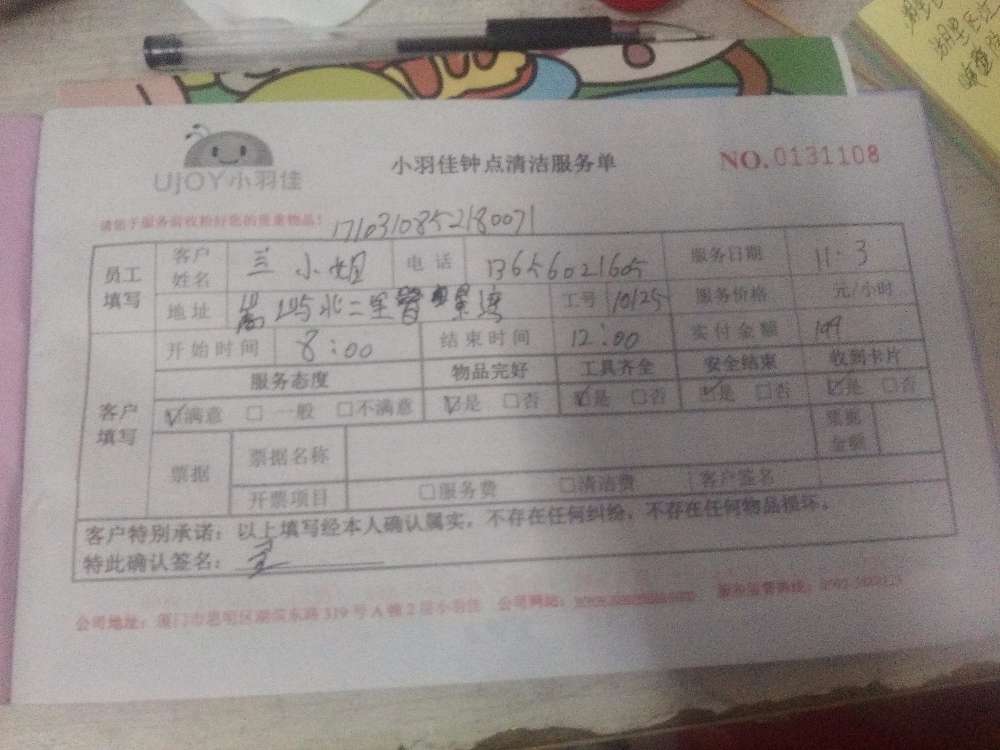 UJOY小羽佳
小羽佳钟点清洁服务单
NO.0131108
请您于服务前收检好您的贵重物品!
1710310852180071
员工填写 客户姓名 兰小姐 电话 13656021605 服务日期 11·3
地址 工号 10125 服务价格 元/小时
客户填写 开始时间 8:00 结束时间 12:00 实付金额 109
服务态度 物品完好 工具齐全 安全结束 收到卡片
☑满意 □一般 □不满意 ☑是 □否 ☑是 □否 ☑是 □否 ☑是 □否
票据 票据名称 票据金额
开票项目 □服务费 □清洁费 客户签名
客户特别承诺:以上填写经本人确认属实,不存在任何纠纷,不存在任何物品损坏。
特此确认签名:
公司地址:厦门市思明区湖滨东路319号A幢2层小羽佳 公司网站: 服务监督热线: